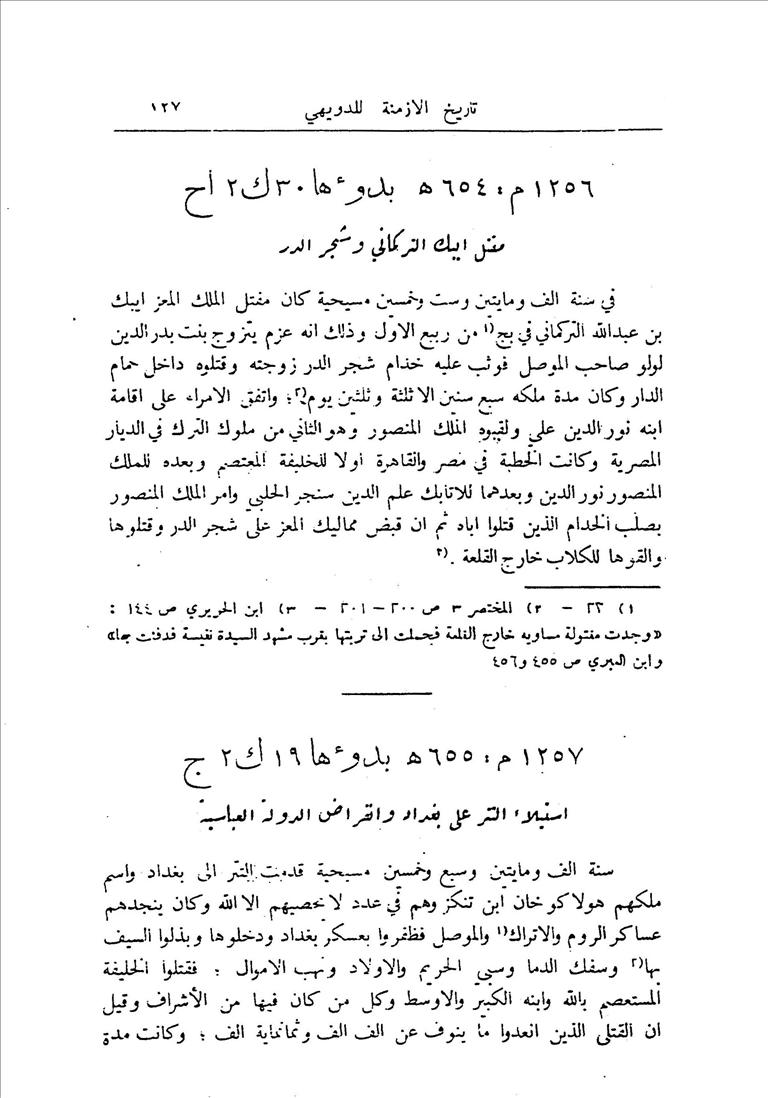 تاريخ الازمنة للدويهي ١٢٧
١٢٥٦ م : ٦٥٤ ه بدوءها ٣٠ ك ٢ اح
مقتل ايبك التركماني وشجر الدر
في سنة الف ومايتين وست وخمسين مسيحية كان مقتل الملك المعز ايبك
بن عبدالله التركماني في بج ١) من ربيع الاول وذلك انه عزم يتزوج بنت بدر الدين
لولو صاحب الموصل فوثب عليه خدام شجر الدر زوجته وقتلوه داخل حمام
الدار وكان مدة ملكه سبع سنين الا ثلثة وثلثين يوم ٢) ؛ واتفق الامراء على اقامة
ابنه نور الدين علي ولقبوه الملك المنصور وهو الثاني من ملوك الترك في الديار
المصرية وكانت الخطبة في مصر والقاهرة اولا للخليفة المعتصم وبعده للملك
المنصور نور الدين وبعدهما للاتابك علم الدين سنجر الحلبي وامر الملك المنصور
بصلب الخدام الذين قتلوا اباه ثم ان قبض مماليك المعز على شجر الدر وقتلوها
والقوها للكلاب خارج القلعة . ٣)
١) ٢٣ – ٢) المختصر ٣ ص ٢٠٠ – ٢٠١ – ٣) ابن الحريري ص ١٤٤ :
«وجدت مقتولة مساويه خارج القلعة فحملت الى تربتها بقرب مشهد السيدة نفيسة فدفنت بها»
وابن العبري ص ٤٥٥ و٤٥٦
١٢٥٧ م : ٦٥٥ ه بدوءها ١٩ ك ٢ ج
استيلاء التتر على بغداد وانقراض الدولة العباسية
سنة الف ومايتين وسبع وخمسين مسيحية قدمت التتر الى بغداد واسم
ملكهم هولاكو خان ابن تنكز وهم في عدد لا يحصيهم الا الله وكان ينجدهم
عساكر الروم والاتراك ١) والموصل فظفروا بعسكر بغداد ودخلوها وبذلوا السيف
بها ٢) وسفك الدما وسبي الحريم والاولاد ونهب الاموال ؛ فقتلوا الخليفة
المستعصم بالله وابنه الكبير والاوسط وكل من كان فيها من الأشراف وقيل
ان القتلى الذين انعدوا ما ينوف عن الف الف وثمانماية الف ؛ وكانت مدة